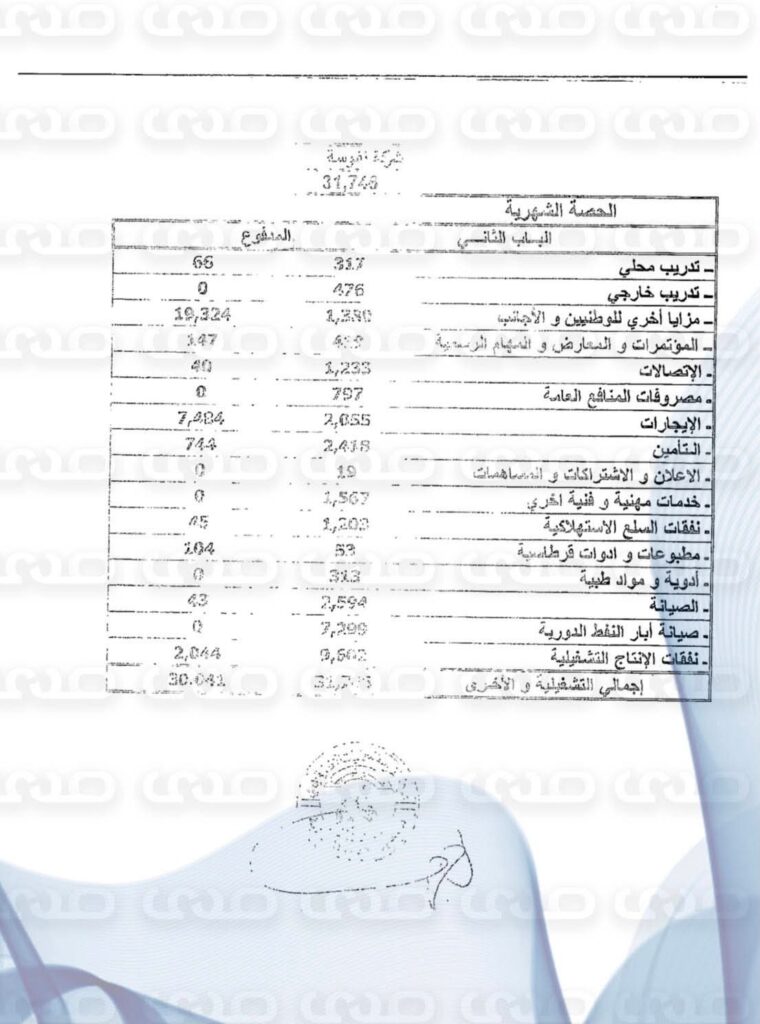 شركة
31,748
الحصة الشهرية
الباب الثاني المدفوع
- تدريب محلي 317 66
- تدريب خارجي 476 0
- مزايا أخري للوطنيين و الأجانب 19,324
- المؤتمرات و المعارض و المهام الرسمية 147
- الإتصالات 1,233 40
- مصروفات المنافع العامة 797 0
- الإيجارات 2,055 7,484
- التأمين 2,418 744
- الاعلان و الاشتراكات و المساهمات 19 0
- خدمات مهنية و فنية اخري 1,567 0
- نفقات السلع الاستهلاكية 1,203 45
- مطبوعات و ادوات قرطاسية 53 104
- أدوية و مواد طبية 313 0
- الصيانة 2,594 43
- صيانة أبار النفط الدورية 7,299 0
- نفقات الإنتاج التشغيلية 2,044
إجمالي التشغيلية و الأخرى 31,748 30.041